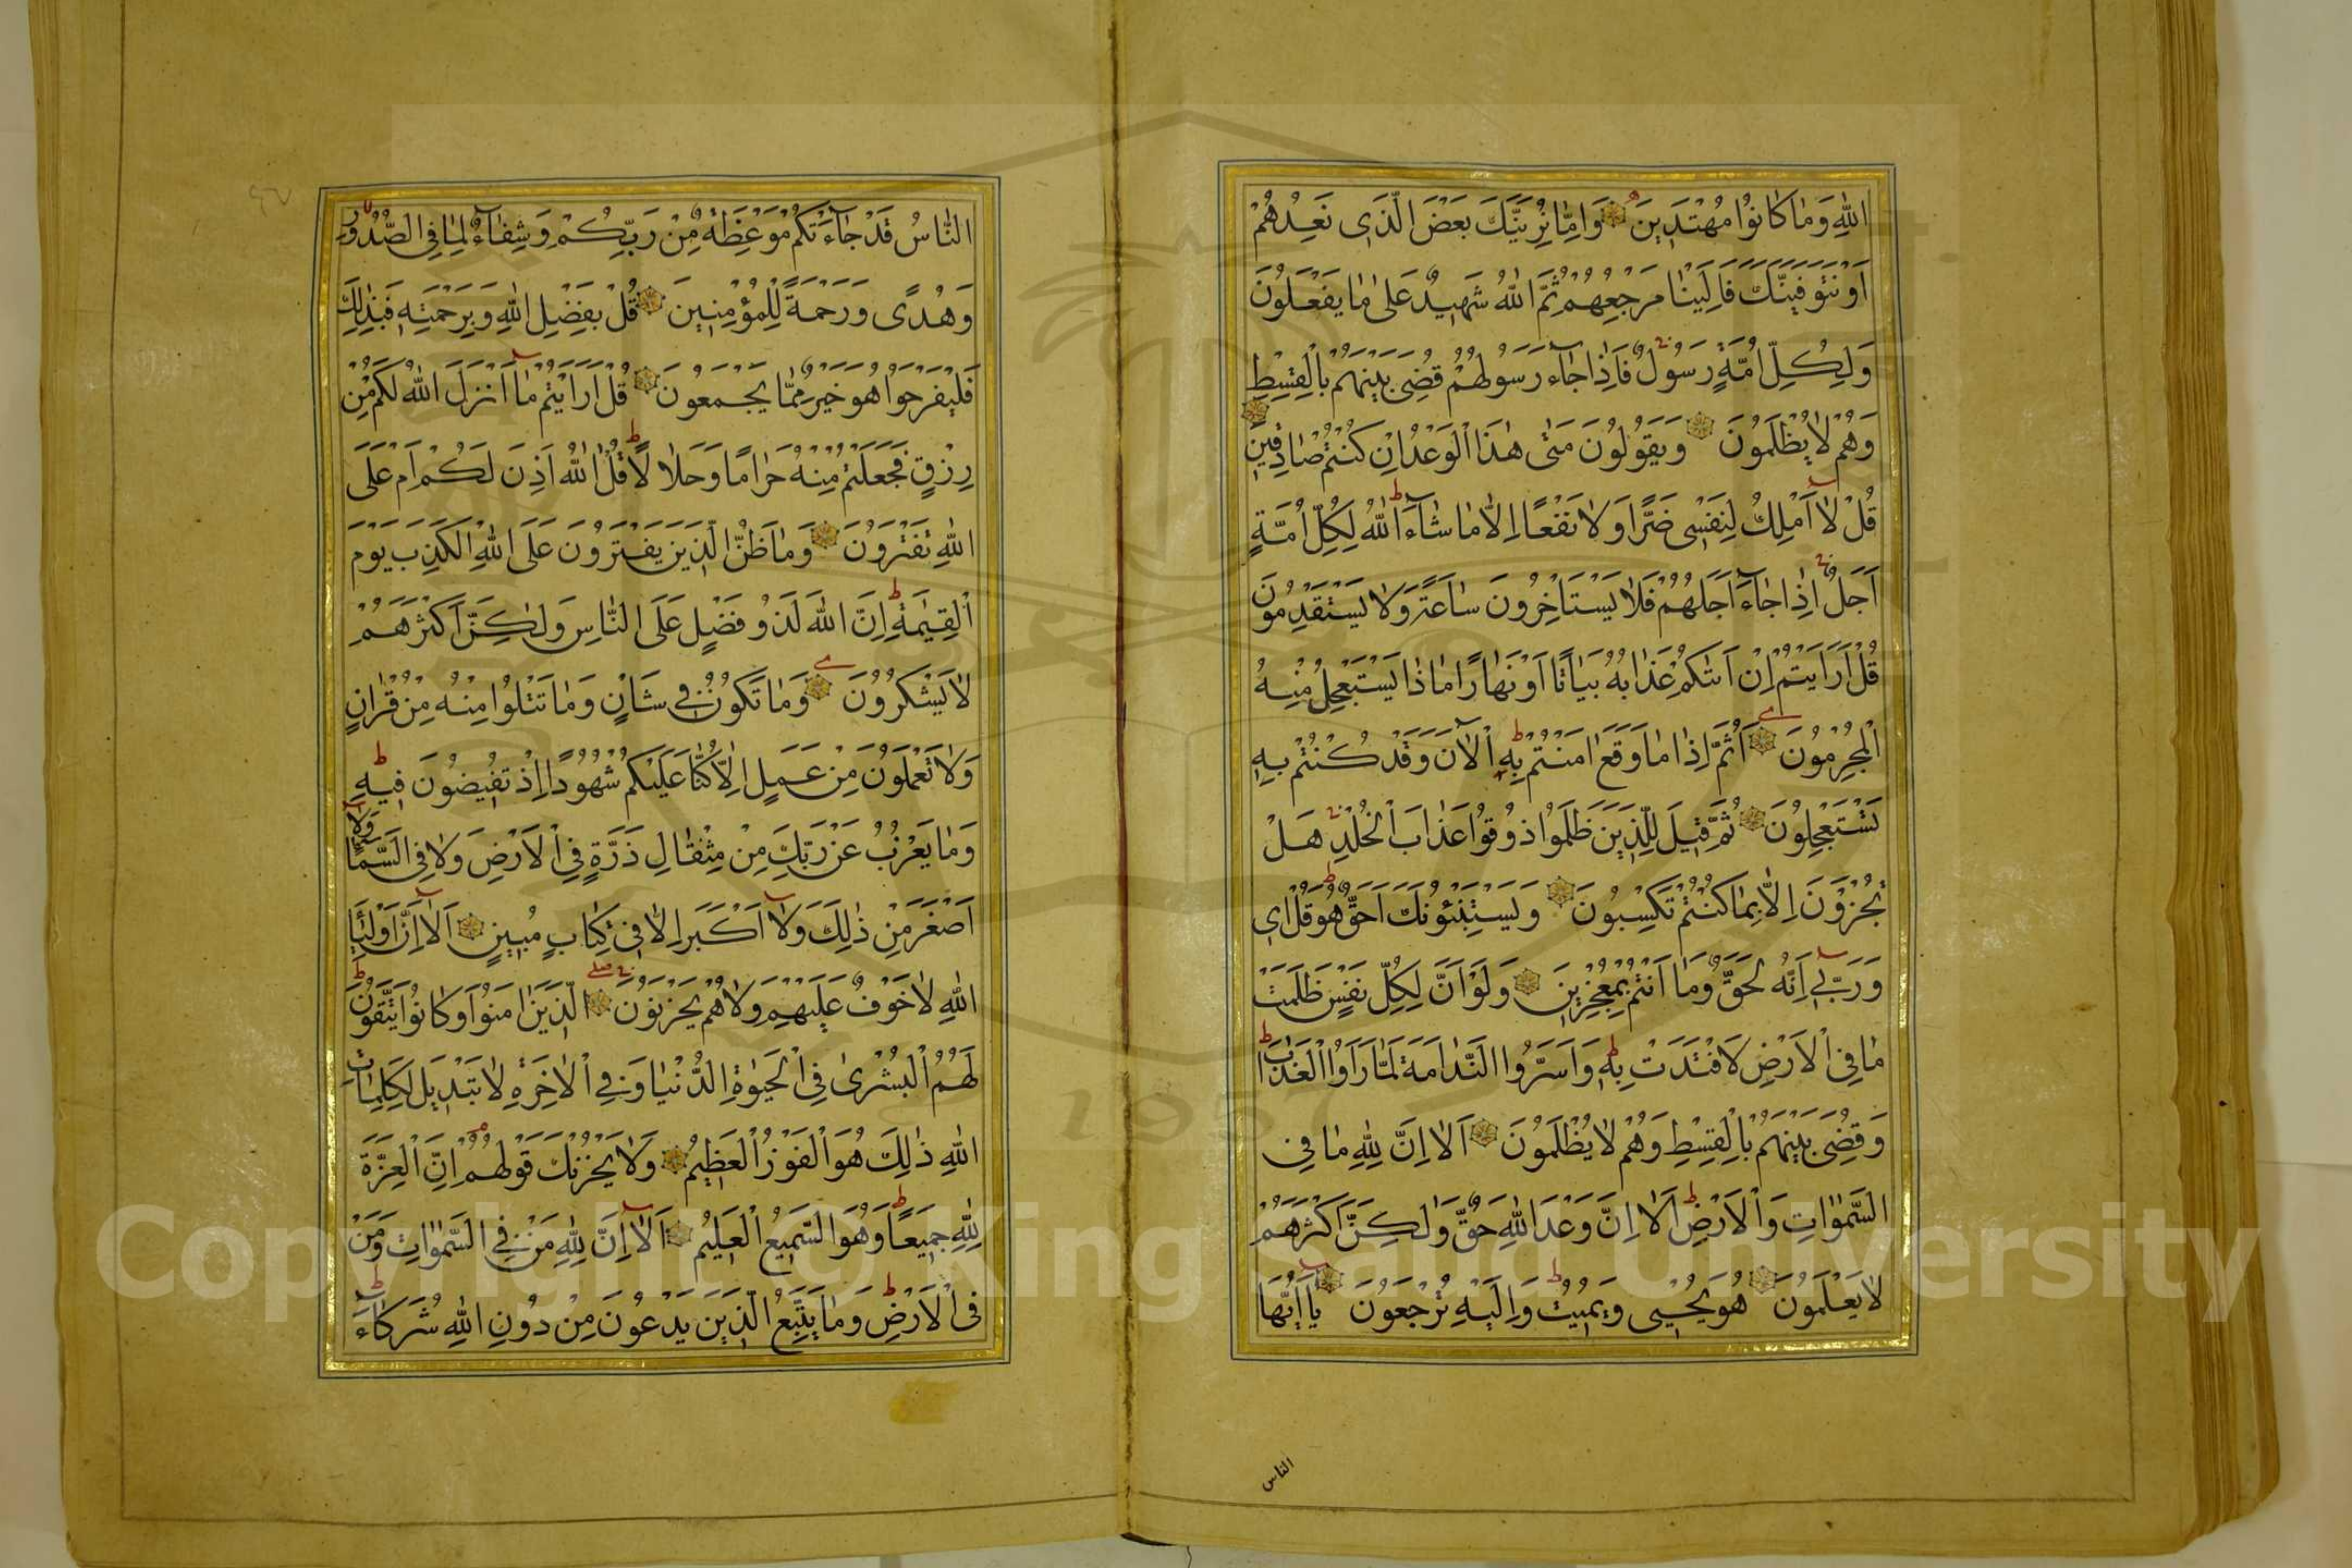 اللهِ وَمَا كَانُوا مُهْتَدِينَ وَاِمَّا نُرِيَنَّكَ بَعْضَ الَّذِى نَعِدُهُمْ
اَوْ نَتَوَفَّيَنَّكَ فَاِلَيْنَا مَرْجِعُهُمْ ثُمَّ اللهُ شَهِيدٌ عَلَى مَا يَفْعَلُونَ
وَلِكُلِّ اُمَّةٍ رَسُولٌ فَاِذَا جَاءَ رَسُولُهُمْ قُضِىَ بَيْنَهُمْ بِالْقِسْطِ
وَهُمْ لَا يُظْلَمُونَ وَيَقُولُونَ مَتٰى هٰذَا الْوَعْدُ اِنْ كُنْتُمْ صَادِقِينَ
قُلْ لَا اَمْلِكُ لِنَفْسِى ضَرًّا وَلَا نَفْعًا اِلَّا مَا شَاءَ اللهُ لِكُلِّ اُمَّةٍ
اَجَلٌ اِذَا جَاءَ اَجَلُهُمْ فَلَا يَسْتَاْخِرُونَ سَاعَةً وَلَا يَسْتَقْدِمُونَ
قُلْ اَرَاَيْتُمْ اِنْ اَتٰىكُمْ عَذَابُهُ بَيَاتًا اَوْ نَهَارًا مَاذَا يَسْتَعْجِلُ مِنْهُ
الْمُجْرِمُونَ اَثُمَّ اِذَا مَا وَقَعَ اٰمَنْتُمْ بِهِ اٰلْاٰنَ وَقَدْ كُنْتُمْ بِهِ
تَسْتَعْجِلُونَ ثُمَّ قِيلَ لِلَّذِينَ ظَلَمُوا ذُوقُوا عَذَابَ الْخُلْدِ هَلْ
تُجْزَوْنَ اِلَّا بِمَا كُنْتُمْ تَكْسِبُونَ وَيَسْتَنْبِئُونَكَ اَحَقٌّ هُوَ قُلْ اِى
وَرَبِّى اِنَّهُ لَحَقٌّ وَمَا اَنْتُمْ بِمُعْجِزِينَ وَلَوْ اَنَّ لِكُلِّ نَفْسٍ ظَلَمَتْ
مَا فِى الْاَرْضِ لَافْتَدَتْ بِهِ وَاَسَرُّوا النَّدَامَةَ لَمَّا رَاَوُا الْعَذَابَ
وَقُضِىَ بَيْنَهُمْ بِالْقِسْطِ وَهُمْ لَا يُظْلَمُونَ اَلَا اِنَّ لِلّٰهِ مَا فِى
السَّمٰوَاتِ وَالْاَرْضِ اَلَا اِنَّ وَعْدَ اللهِ حَقٌّ وَلٰكِنَّ اَكْثَرَهُمْ
لَا يَعْلَمُونَ هُوَ يُحْيِى وَيُمِيتُ وَاِلَيْهِ تُرْجَعُونَ يَا اَيُّهَا
الناس
النَّاسُ قَدْ جَاءَتْكُمْ مَوْعِظَةٌ مِنْ رَبِّكُمْ وَشِفَاءٌ لِمَا فِى الصُّدُورِ
وَهُدًى وَرَحْمَةٌ لِلْمُؤْمِنِينَ قُلْ بِفَضْلِ اللهِ وَبِرَحْمَتِهِ فَبِذٰلِكَ
فَلْيَفْرَحُوا هُوَ خَيْرٌ مِمَّا يَجْمَعُونَ قُلْ اَرَاَيْتُمْ مَا اَنْزَلَ اللهُ لَكُمْ مِنْ
رِزْقٍ فَجَعَلْتُمْ مِنْهُ حَرَامًا وَحَلَالًا قُلْ اٰللهُ اَذِنَ لَكُمْ اَمْ عَلَى
اللهِ تَفْتَرُونَ وَمَا ظَنُّ الَّذِينَ يَفْتَرُونَ عَلَى اللهِ الْكَذِبَ يَوْمَ
الْقِيٰمَةِ اِنَّ اللهَ لَذُو فَضْلٍ عَلَى النَّاسِ وَلٰكِنَّ اَكْثَرَهُمْ
لَا يَشْكُرُونَ وَمَا تَكُونُ فِى شَاْنٍ وَمَا تَتْلُوا مِنْهُ مِنْ قُرْاٰنٍ
وَلَا تَعْمَلُونَ مِنْ عَمَلٍ اِلَّا كُنَّا عَلَيْكُمْ شُهُودًا اِذْ تُفِيضُونَ فِيهِ
وَمَا يَعْزُبُ عَنْ رَبِّكَ مِنْ مِثْقَالِ ذَرَّةٍ فِى الْاَرْضِ وَلَا فِى السَّمَاءِ وَلَا
اَصْغَرَ مِنْ ذٰلِكَ وَلَا اَكْبَرَ اِلَّا فِى كِتَابٍ مُبِينٍ اَلَا اِنَّ اَوْلِيَاءَ
اللهِ لَا خَوْفٌ عَلَيْهِمْ وَلَا هُمْ يَحْزَنُونَ الَّذِينَ اٰمَنُوا وَكَانُوا يَتَّقُونَ
لَهُمُ الْبُشْرٰى فِى الْحَيٰوةِ الدُّنْيَا وَفِى الْاٰخِرَةِ لَا تَبْدِيلَ لِكَلِمَاتِ
اللهِ ذٰلِكَ هُوَ الْفَوْزُ الْعَظِيمُ وَلَا يَحْزُنْكَ قَوْلُهُمْ اِنَّ الْعِزَّةَ
لِلّٰهِ جَمِيعًا وَهُوَ السَّمِيعُ الْعَلِيمُ اَلَا اِنَّ لِلّٰهِ مَنْ فِى السَّمٰوَاتِ وَمَنْ
فِى الْاَرْضِ وَمَا يَتَّبِعُ الَّذِينَ يَدْعُونَ مِنْ دُونِ اللهِ شُرَكَاءَ
Copyright © King Saud University
1957